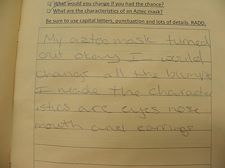 What would you change if you had the chance?
What are the characteristics of an Aztec mask?
Be sure to use capital letters, punctuation and lots of details. RADD.
My aztec mask turned
out okay I would
change all the bumps
I made the character
istics are eyes nose
mouth and earrings